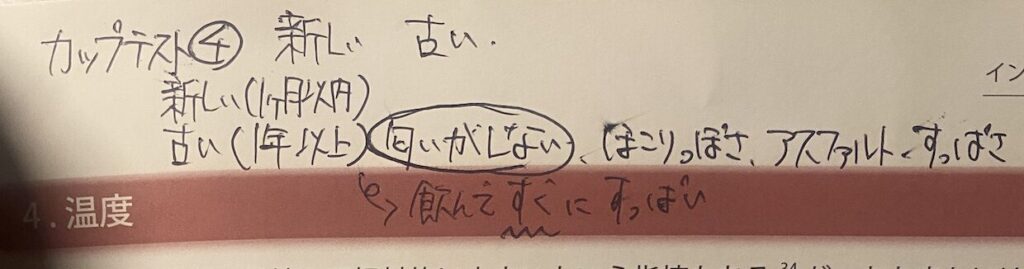 カップテスト④ 新しい 古い.
イン
新しい(1ヶ月以内)
古い(1年以上) 匂いがしない、ほこりっぽさ、アスファルト、すっぱさ
→飲んですぐにすっぱい
4.温度